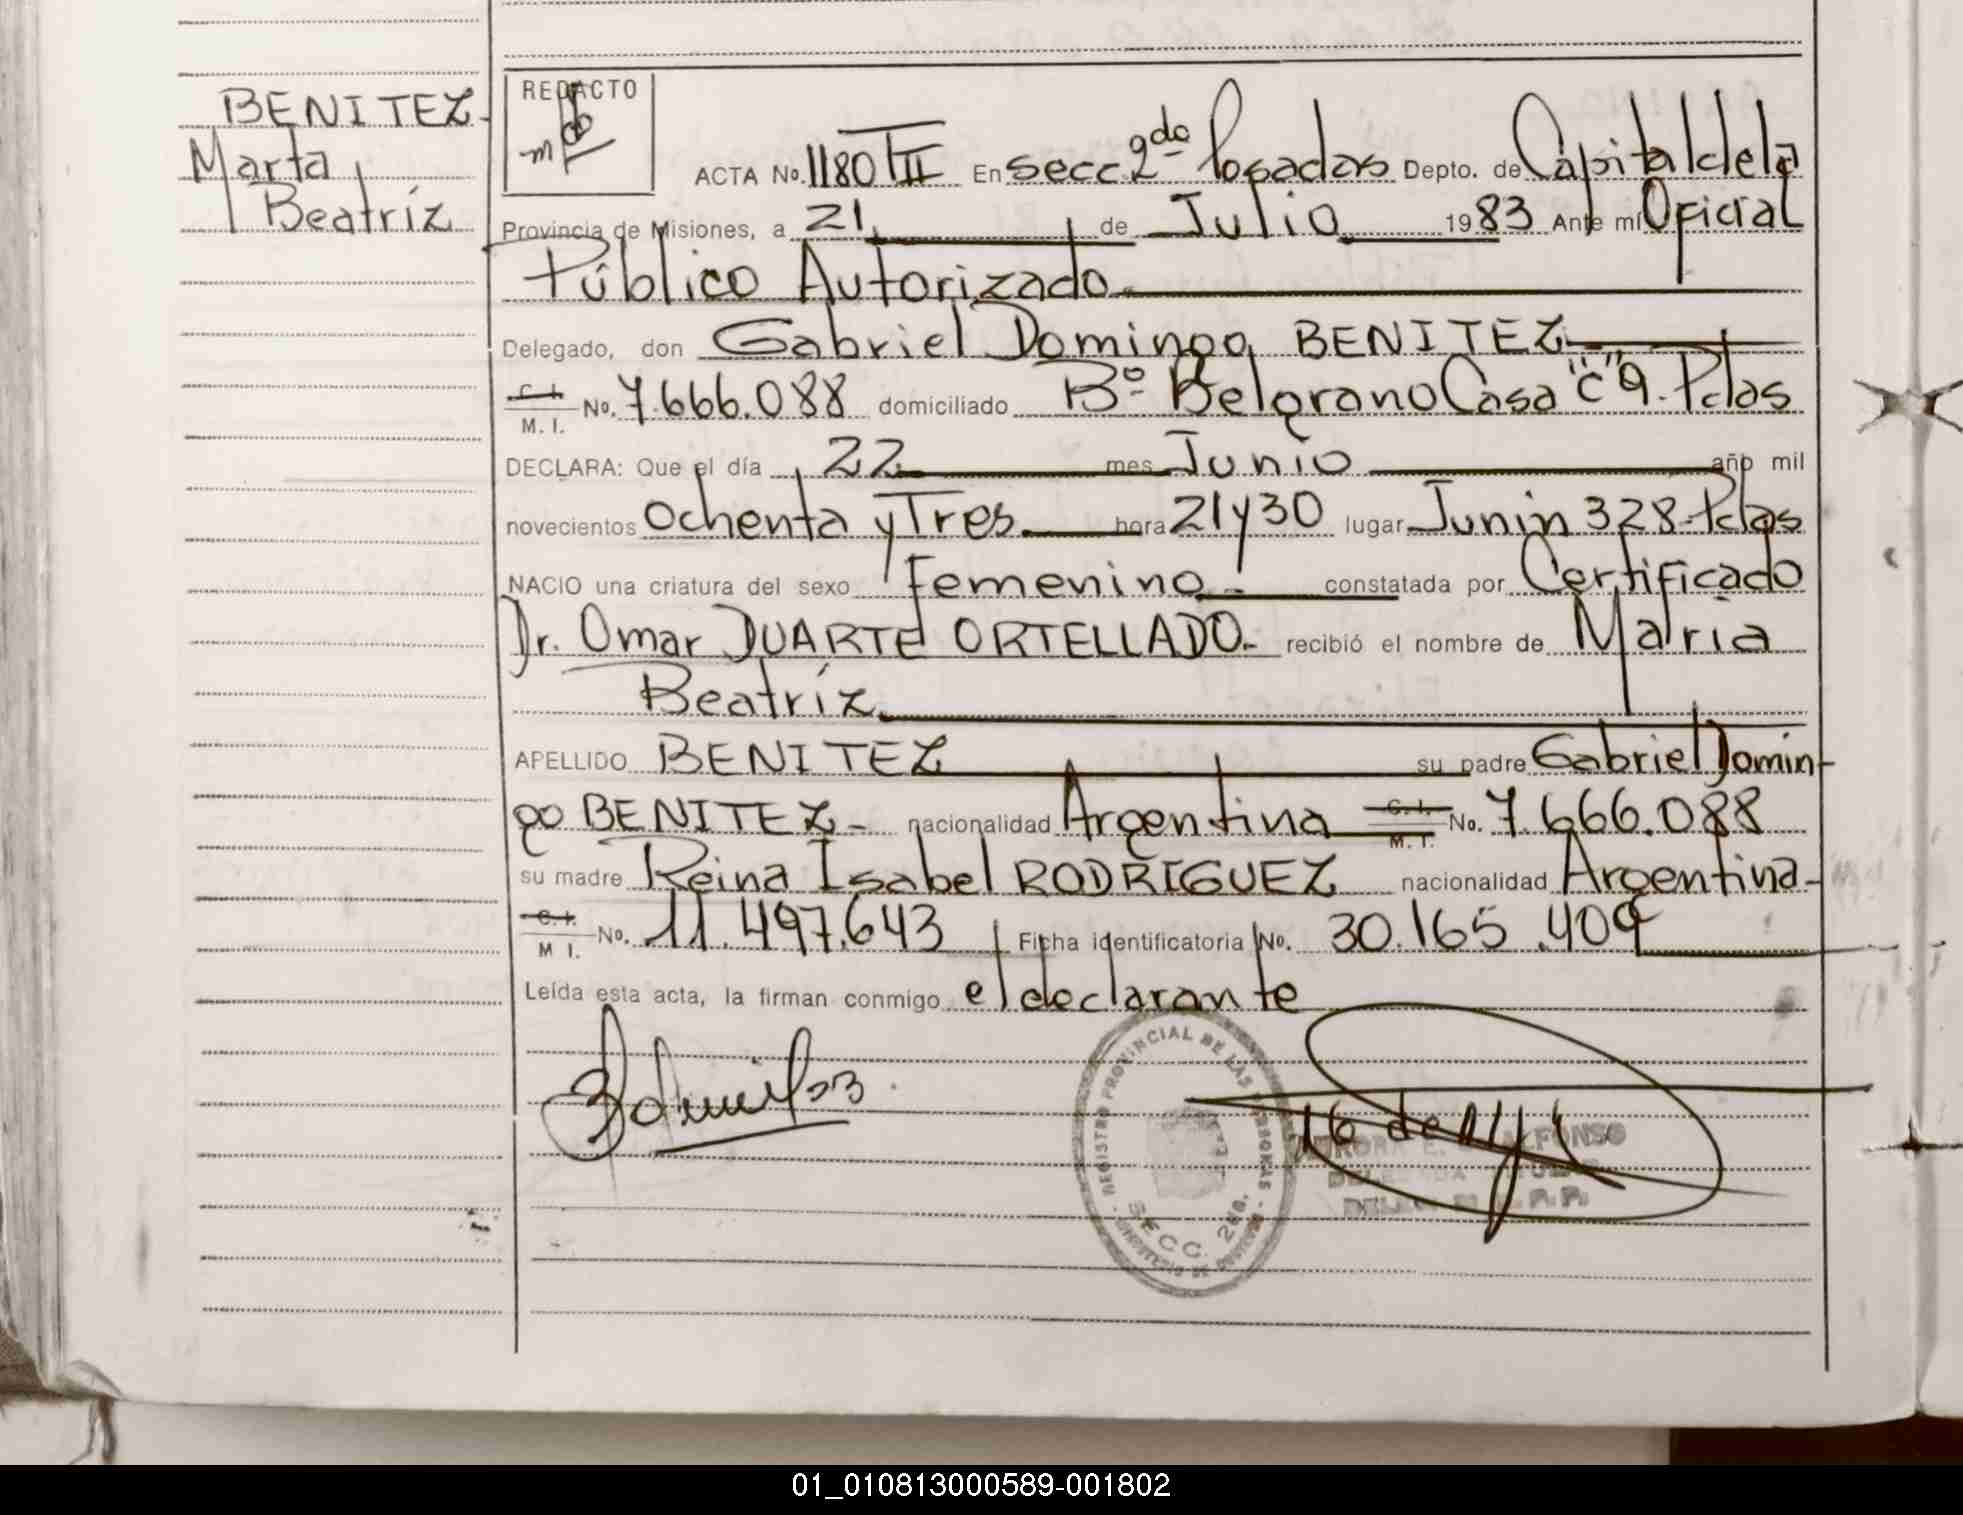 BENITEZ
Marta
Beatríz
REDACTO
ACTA No. 1180 T II En secc. 2da Posadas Depto. de Capital de la
Provincia de Misiones, a 21 de Julio 1983 Ante mí Oficial
Público Autorizado.
Delegado, don Gabriel Domingo BENITEZ
C. I.
M. I. No. 7.666.088 domiciliado Bº Belgrano Casa "C" 9. Pdas
DECLARA: Que el día 22 mes Junio año mil
novecientos ochenta y Tres hora 21 y 30 lugar Junin 328-Pdas
NACIO una criatura del sexo Femenino constatada por Certificado
Dr. Omar DUARTE ORTELLADO.- recibió el nombre de Maria
Beatríz
APELLIDO BENITEZ su padre Gabriel Domin-
go BENITEZ- nacionalidad Argentina C. I. M. I. No. 7.666.088
su madre Reina Isabel RODRIGUEZ nacionalidad Argentina-
C. I.
M I. No. 11.497.643 Ficha identificatoria No. 30.165.409
Leída esta acta, la firman conmigo el declarante
REGISTRO PROVINCIAL DE LAS PERSONAS
SECC. 2da.
ALFONSO
01_010813000589-001802